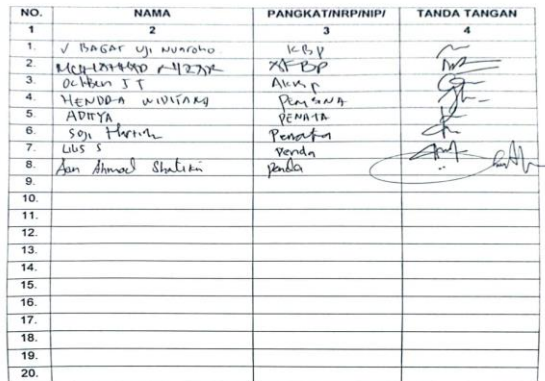 NO. NAMA PANGKAT/NRP/NIP/ TANDA TANGAN
1 2 3 4
1. V BAGAS UJI NUGROHO. KBP
2. MOHAMMAD AKBP
3. Ochben J T AKBP
4. HENDRA WIDITANG PEMBINA
5. ADITYA PENATA
6. Penata
7. LILIS S Penda
8. Aan Ahmad Sholikin Penda
9.
10.
11.
12.
13.
14.
15.
16.
17.
18.
19.
20.